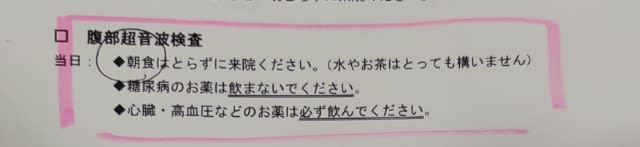 □ 腹部超音波検査
当日： ◆朝食はとらずに来院ください。（水やお茶はとっても構いません）
◆糖尿病のお薬は飲まないでください。
◆心臓・高血圧などのお薬は必ず飲んでください。